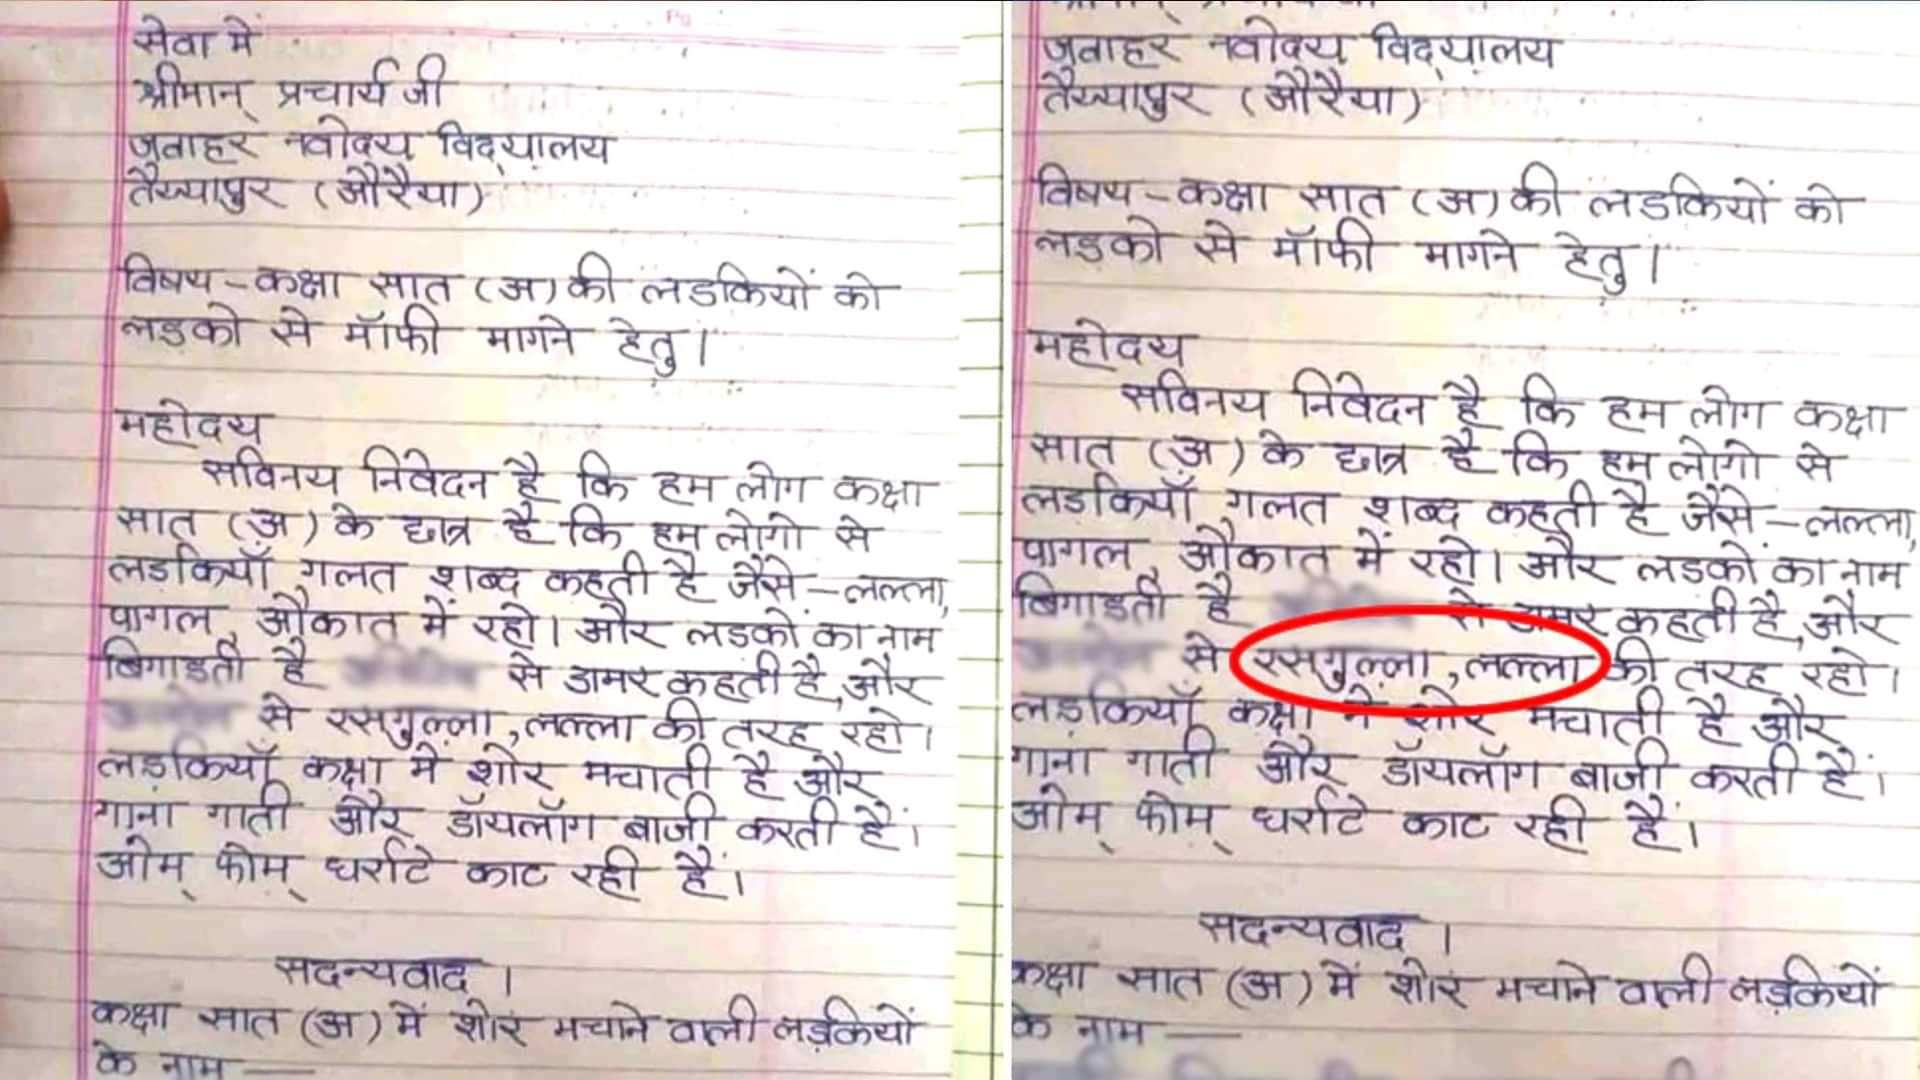 Pg
सेवा में
श्रीमान् प्रचार्य जी
जवाहर नवोदय विद्यालय
तैय्यापुर (औरैया)
विषय - कक्षा सात (अ) की लडकियों को
लडको से मॉफी मागने हेतु।
महोदय
सविनय निवेदन है कि हम लोग कक्षा
सात (अ) के छात्र है कि हम लोगो से
लडकियाँ गलत शब्द कहती है जैसे - लल्ला,
पागल, औकात में रहो। और लडकों का नाम
बिगाडती है से डामर कहती है, और
से रसगुल्ला, लल्ला की तरह रहो।
लडकियाँ कक्षा में शोर मचाती है और
गाना गाती और डॉयलॉग बाजी करती हैं।
ओम् फोम् धर्राटे काट रही हैं।
सदन्यवाद।
कक्षा सात (अ) में शोर मचाने वाली लड़कियों
के नाम —
जवाहर नवोदय विद्यालय
तैय्यापुर (औरैया)
विषय - कक्षा सात (अ) की लडकियों को
लडको से मॉफी मागने हेतु।
महोदय
सविनय निवेदन है कि हम लोग कक्षा
सात (अ) के छात्र है कि हम लोगो से
लडकियाँ गलत शब्द कहती है जैसे - लल्ला,
पागल, औकात में रहो। और लडकों का नाम
बिगाडती है से डामर कहती है, और
से रसगुल्ला, लल्ला की तरह रहो।
लडकियाँ कक्षा में शोर मचाती है और
गाना गाती और डॉयलॉग बाजी करती हैं।
ओम् फोम् धर्राटे काट रही हैं।
सदन्यवाद।
कक्षा सात (अ) में शोर मचाने वाली लड़कियों
के नाम —